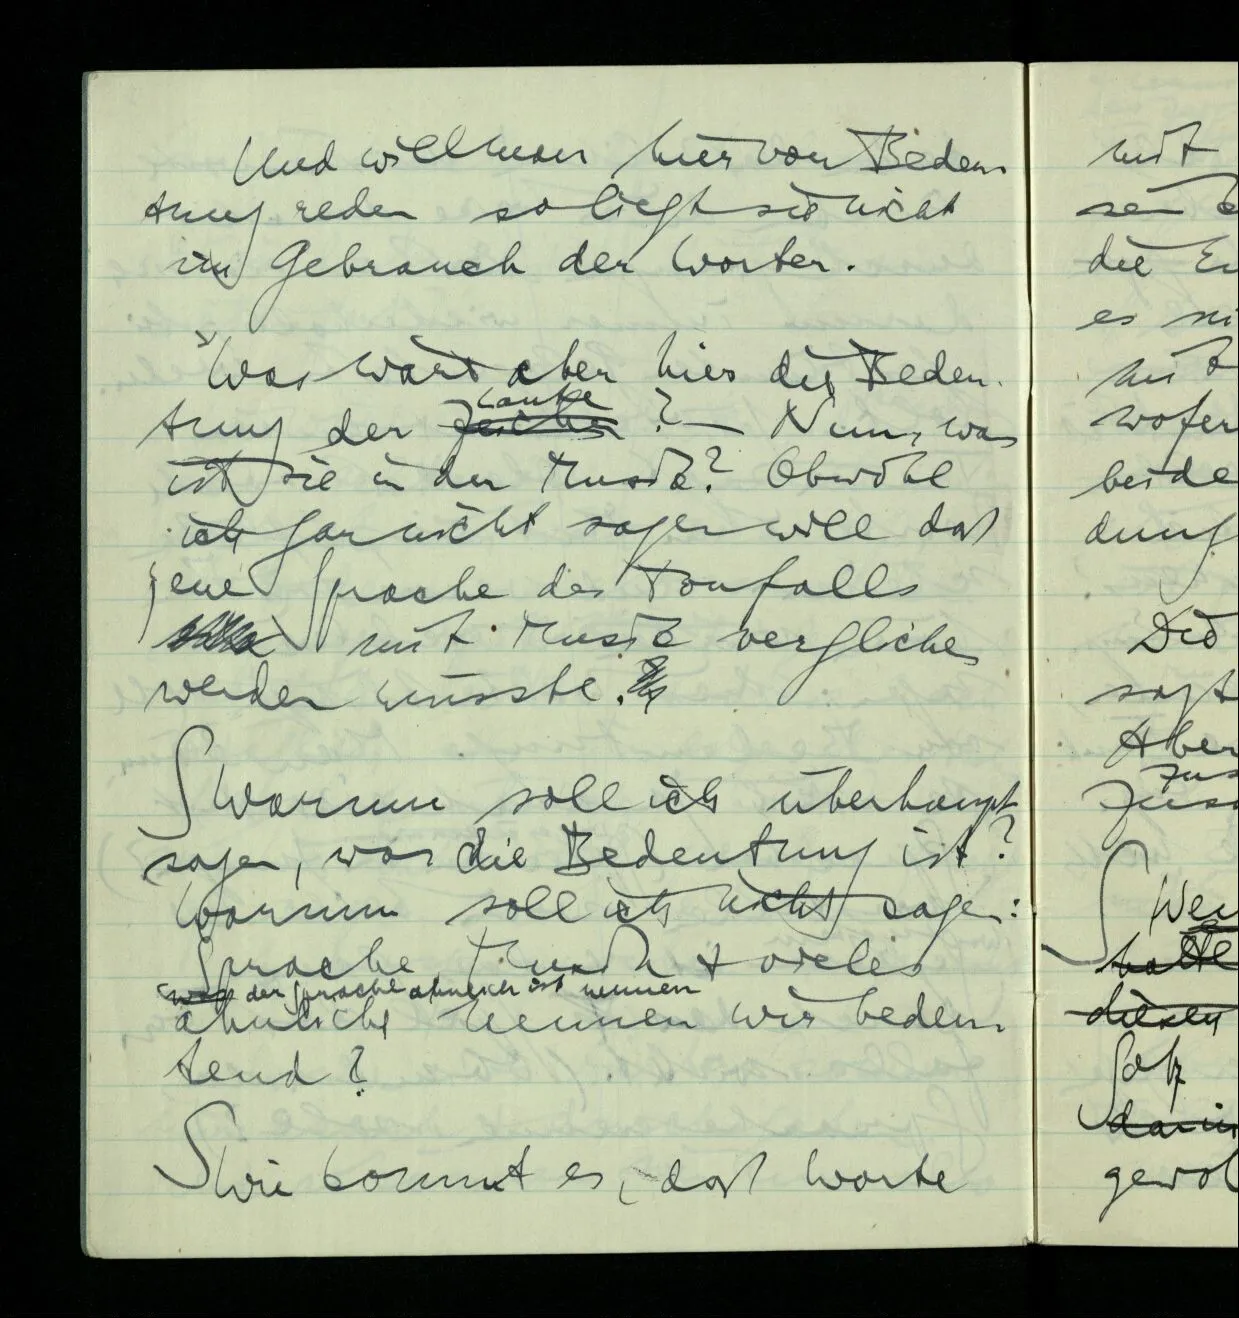 Und will man hier von Bedeu-
tung reden so liegt sie nicht
im Gebrauch der Worter.
"Was wäre aber hier die Bedeu-
tung der Zeichen Laute ? — Nun, was
ist sie in der Musik? Obwohl
ich gar nicht sagen will daß
jene Sprache des Tonfalls
mit Musik verglichen
werden müsste.
S Warum soll ich überhaupt
sagen, was die Bedeutung ist?
Warum soll ich nicht sagen:
Sprache, Musik + vieles
was der Sprache ähnlich ist nennen
ähnliche nennen wir bedeu-
tend?
S Wie kommt es, daß Worte
mit
sei
die
es
mit
wofer
beide
dung
Die
sagt
Aber
Zus
S Wen
hatte
diesen
Satz
darin
gewol